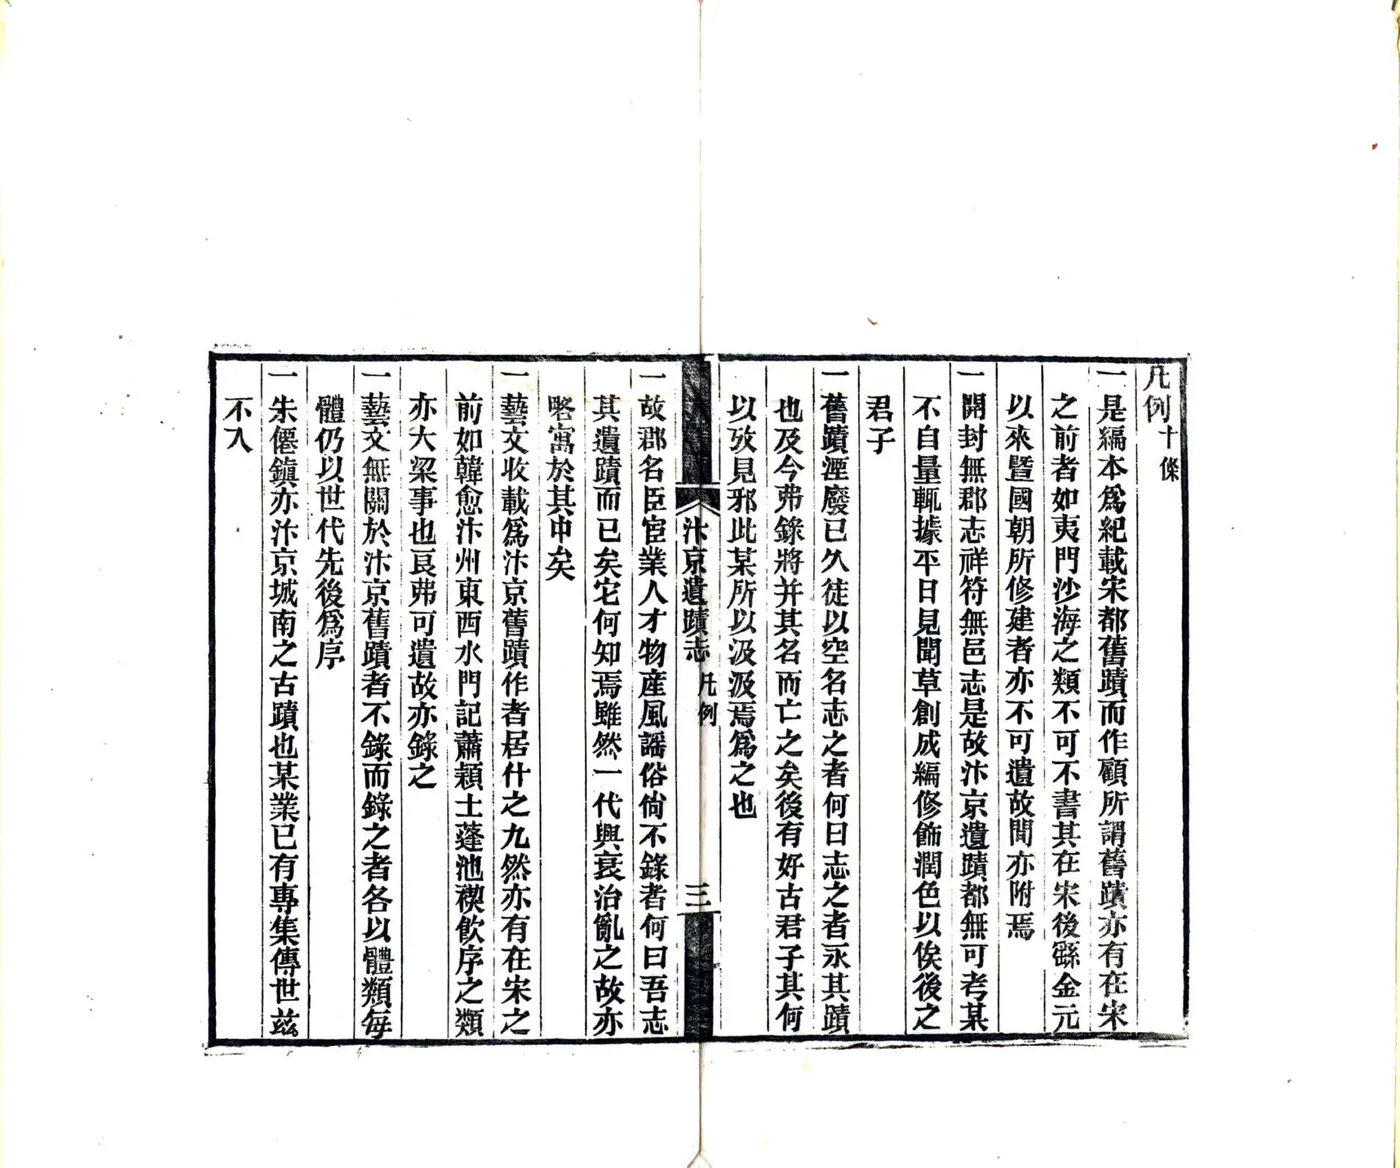 凡例十條
一是編本爲紀載宋都舊蹟而作顧所謂舊蹟亦有在宋
之前者如夷門沙海之類不可不書其在宋後繇金元
以來暨國朝所修建者亦不可遺故間亦附焉
一開封無郡志祥符無邑志是故汴京遺蹟都無可考某
不自量輒據平日見聞草創成編修飾潤色以俟後之
君子
一舊蹟湮廢已久徒以空名志之者何曰志之者永其蹟
也及今弗錄將并其名而亡之矣後有好古君子其何
以攷見邪此某所以汲汲焉爲之也
汴京遺蹟志 凡例 三
一故郡名臣宦業人才物産風謠俗尙不錄者何曰吾志
其遺蹟而已矣它何知焉雖然一代興衰治亂之故亦
畧寓於其中矣
一藝文收載爲汴京舊蹟作者居什之九然亦有在宋之
前如韓愈汴州東西水門記蕭穎士蓬池禊飮序之類
亦大梁事也㫐弗可遺故亦錄之
一藝文無關於汴京舊蹟者不錄而錄之者各以體類每
體仍以世代先後爲序
一朱僊鎮亦汴京城南之古蹟也某業已有專集傳世茲
不入